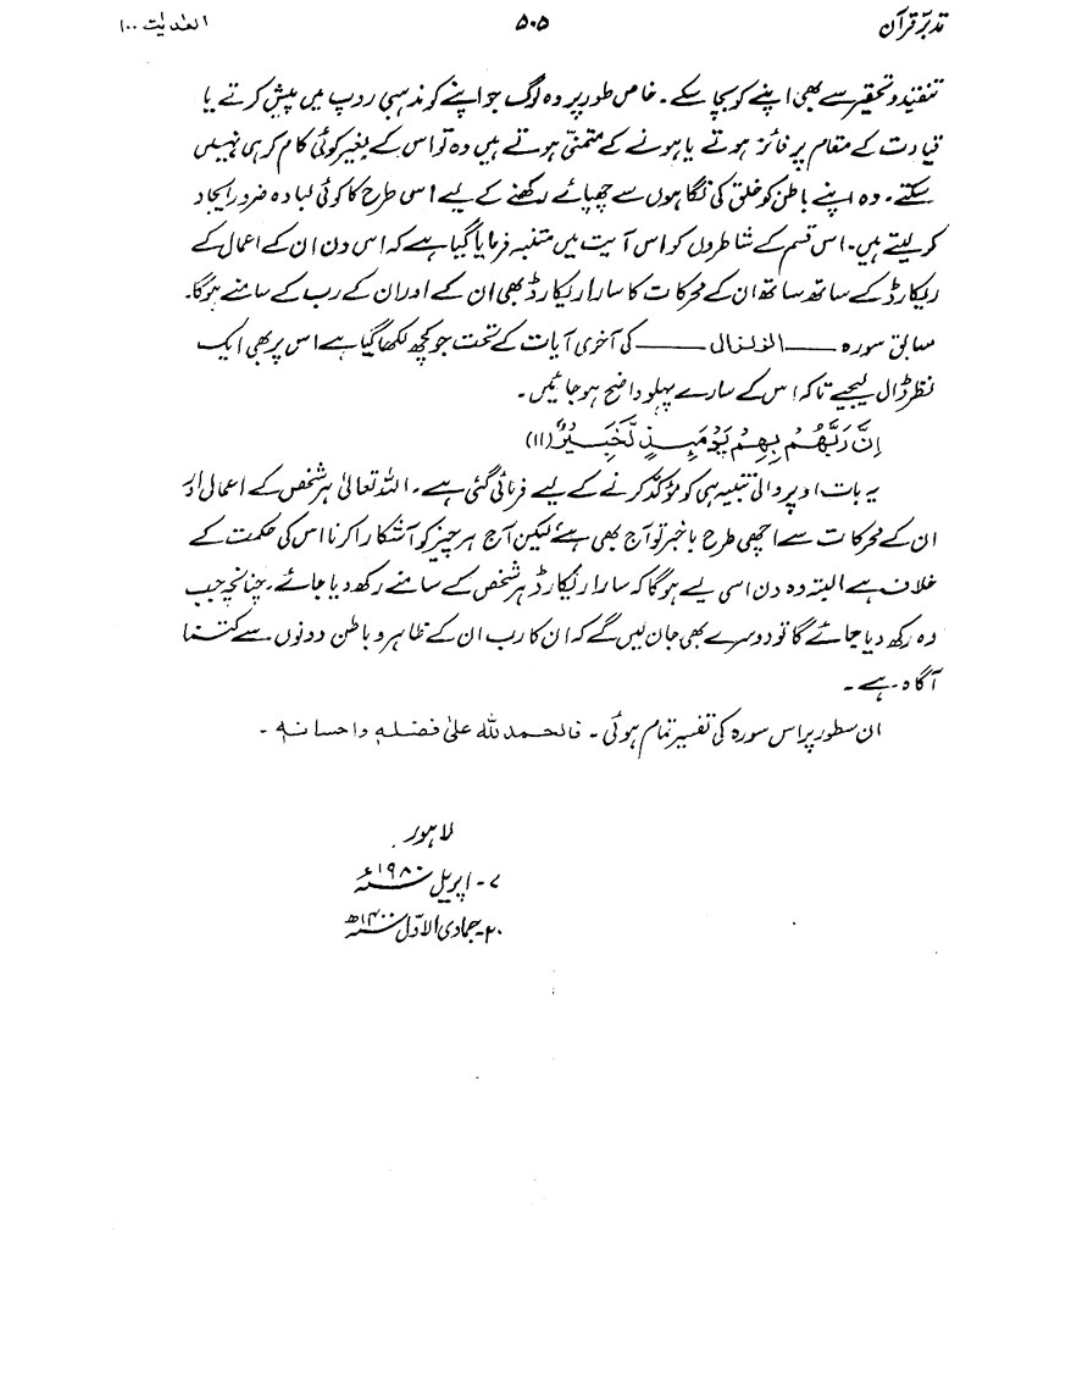 تدبّرِ قرآن ۵۰۵ العٰدیٰت ۱۰۰
تنقید و تحقیر سے بھی اپنے کو بچا سکے۔ خاص طور پر وہ لوگ جو اپنے کو مذہبی روپ میں پیش کرتے یا
قیادت کے مقام پر فائز ہوتے یا ہونے کے متمنّی ہوتے ہیں وہ تو اس کے بغیر کوئی کام کر ہی نہیں
سکتے۔ وہ اپنے باطن کو خلق کی نگاہوں سے چھپائے رکھنے کے لیے اسی طرح کا کوئی لبادہ ضرور ایجاد
کر لیتے ہیں۔ اس قسم کے شاطروں کو اس آیت میں متنبہ فرمایا گیا ہے کہ اس دن ان کے اعمال کے
ریکارڈ کے ساتھ ساتھ ان کے محرکات کا سارا ریکارڈ بھی ان کے اور ان کے رب کے سامنے ہوگا۔
سابق سورہ ـــــ الزلزال ـــــ کی آخری آیات کے تحت جو کچھ لکھا گیا ہے اس پر بھی ایک
نظر ڈال لیجیے تاکہ اس کے سارے پہلو واضح ہو جائیں۔
اِنَّ رَبَّهُمْ بِهِمْ يَوْمَىِٕذٍ لَّخَبِيْرٌ (۱۱)
یہ بات اوپر والی تنبیہ ہی کو مؤکّد کرنے کے لیے فرمائی گئی ہے۔ اللہ تعالیٰ ہر شخص کے اعمال اور
ان کے محرکات سے اچھی طرح باخبر تو آج بھی ہے لیکن آج ہر چیز کو آشکارا کرنا اس کی حکمت کے
خلاف ہے البتہ وہ دن اسی لیے ہوگا کہ سارا ریکارڈ ہر شخص کے سامنے رکھ دیا جائے۔ چنانچہ جب
وہ رکھ دیا جائے گا تو دوسرے بھی جان لیں گے کہ ان کا رب ان کے ظاہر و باطن دونوں سے کتنا
آگاہ ہے۔
ان سطور پر اس سورہ کی تفسیر تمام ہوئی۔ فالحمد للہ علیٰ فضلہٖ و احسانہٖ۔
لاہور
۷۔ اپریل ۱۹۸۰ء
۲۰۔ جمادی الاوّل ۱۴۰۰ھ